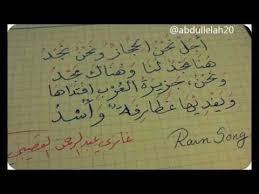 @abdullelah20
أجل نحن الحجاز ونحن نجد
هنا مجد لنا وهناك مجد
ونحن جزيرة العرب افتداها
ويفديها غطارفة وأسد
غازي عبدالرحمن القصيبي
Rain Song